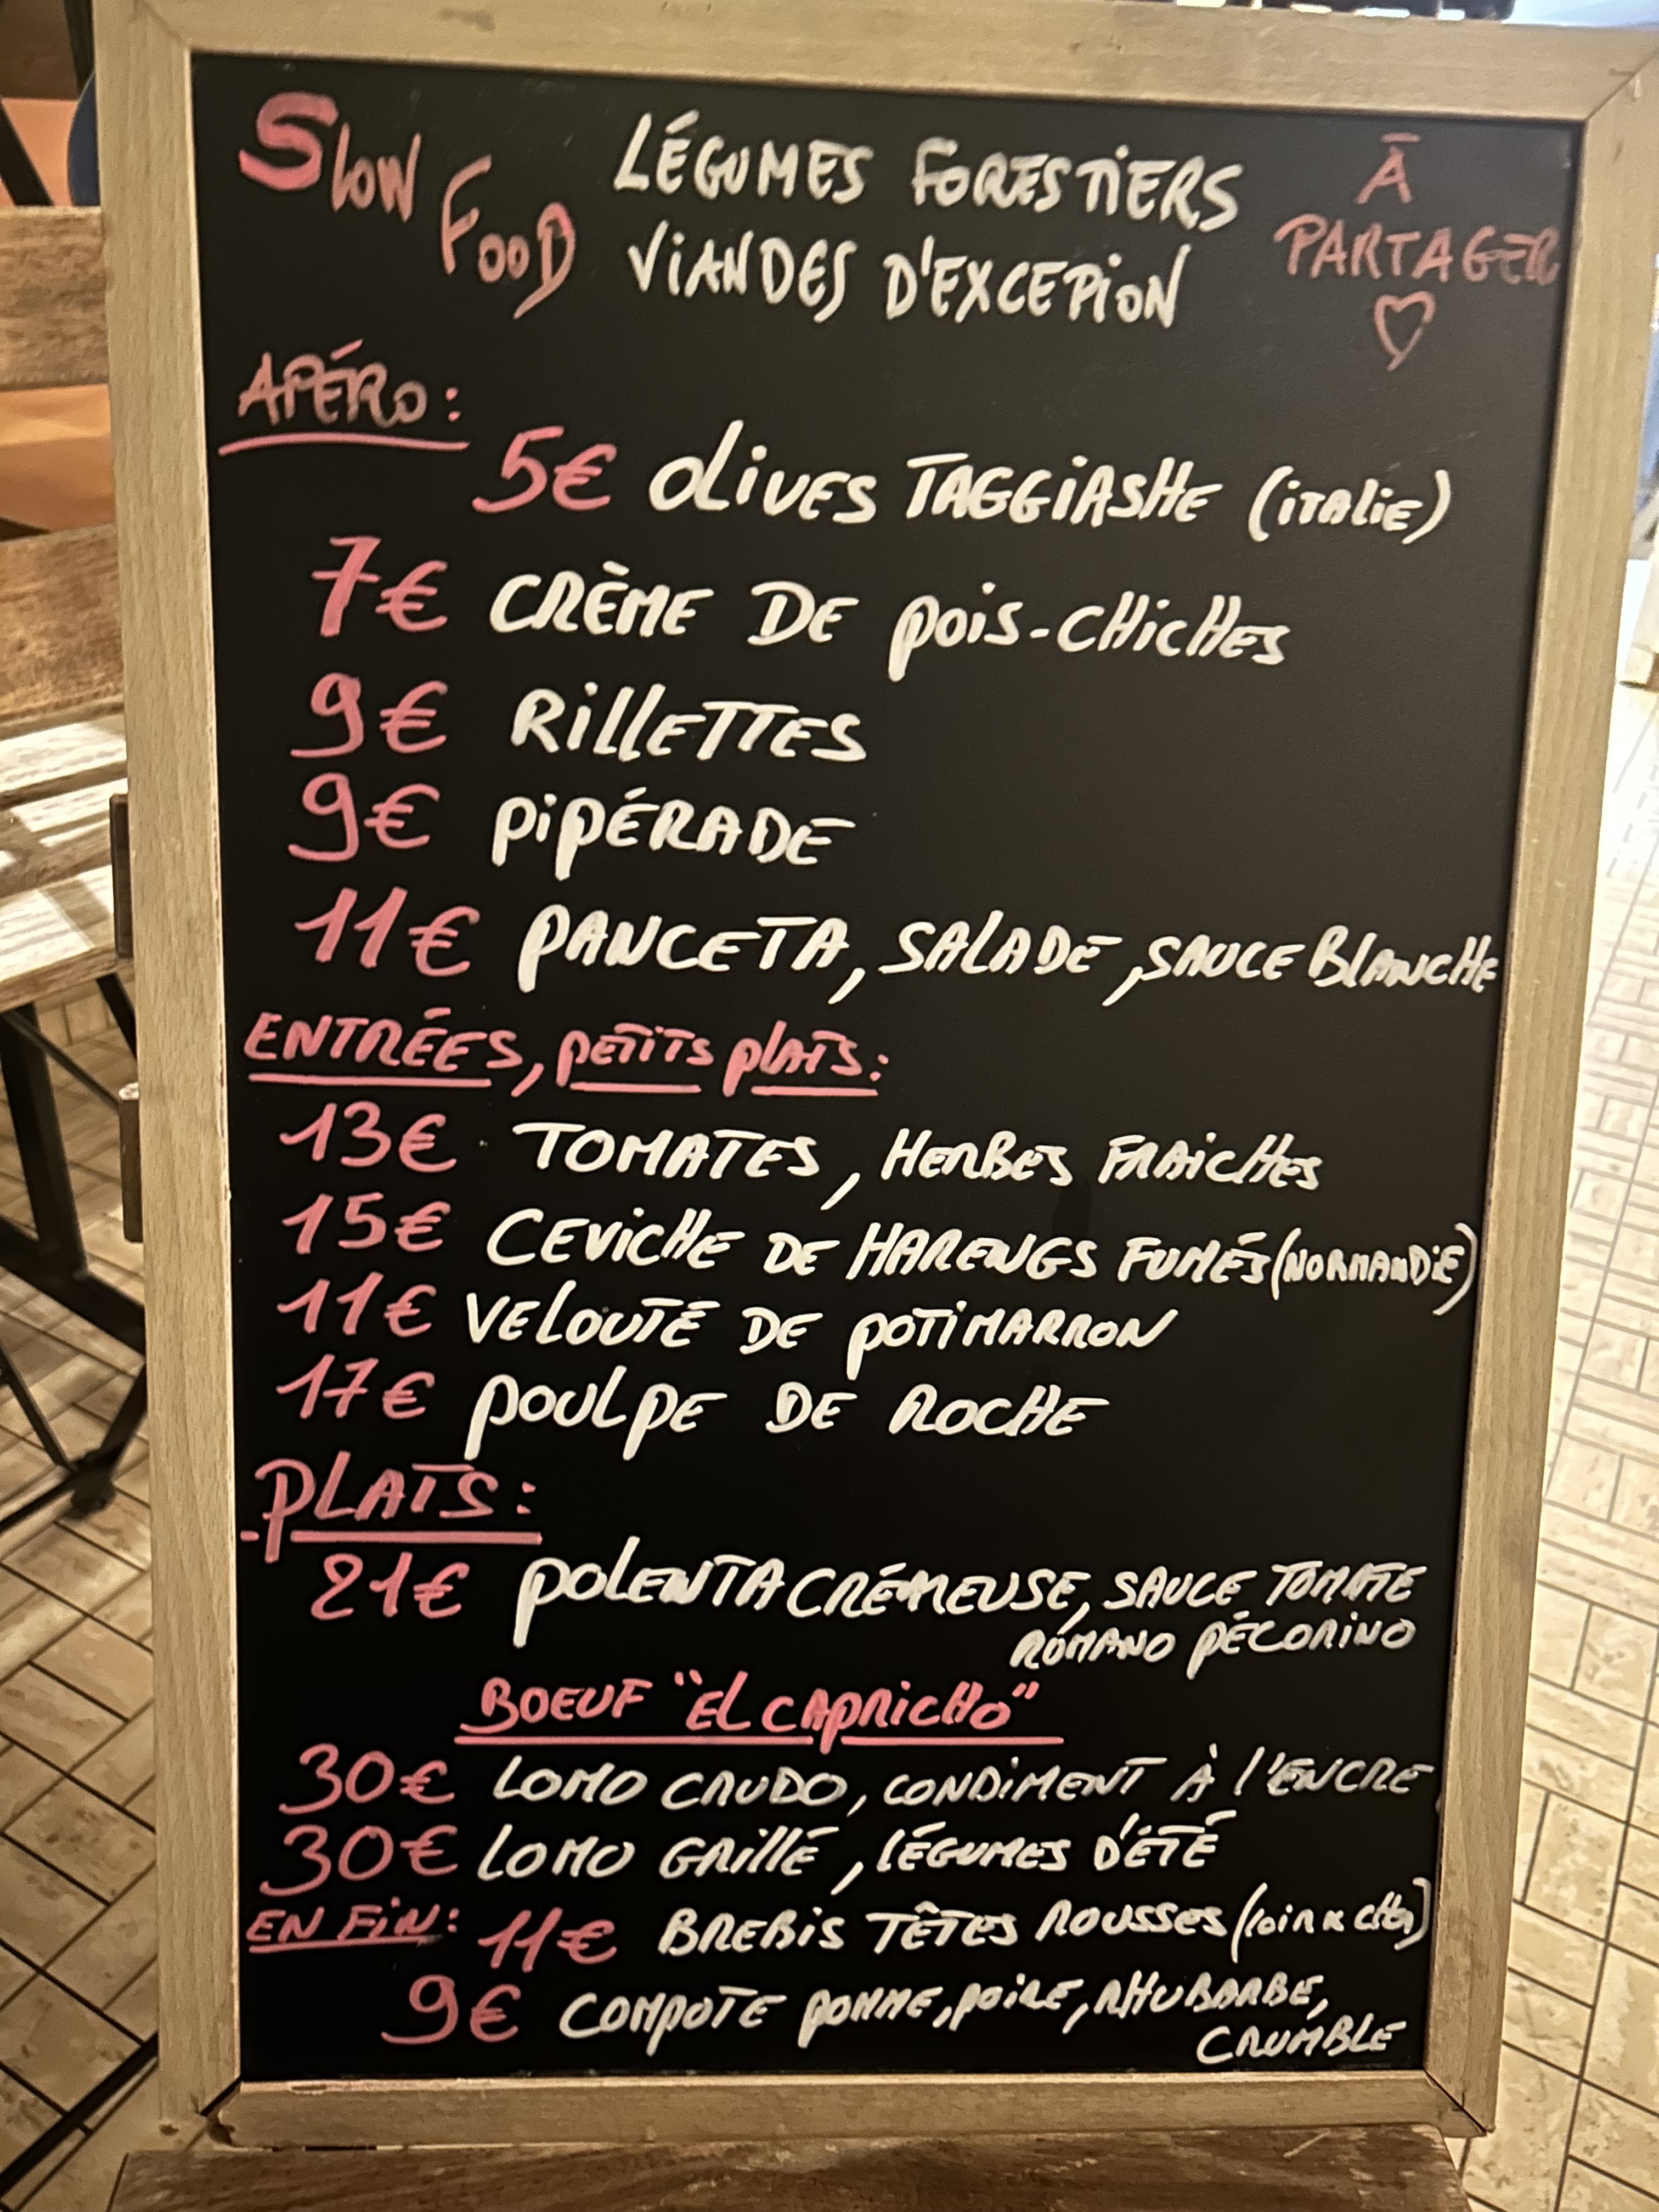 SLOW FOOD
LÉGUMES FORESTIERS
VIANDES D'EXCEPION
À
PARTAGER
APÉRO:
5€ OLIVES TAGGIASHE (ITALIE)
7€ CRÈME DE POIS-CHICHES
9€ RILLETTES
9€ PIPÉRADE
11€ PANCETA, SALADE, SAUCE BLANCHE
ENTRÉES, PETITS PLATS:
13€ TOMATES, HERBES FRAICHES
15€ CEVICHE DE HARENGS FUMÉS (NORMANDIE)
11€ VELOUTÉ DE POTIMARRON
17€ POULPE DE ROCHE
PLATS:
21€ POLENTA CRÉMEUSE, SAUCE TOMATE
ROMANO PÉCORINO
BOEUF "EL CAPRICHO"
30€ LOMO CRUDO, CONDIMENT À L'ENCRE
30€ LOMO GRILLÉ, LÉGUMES D'ÉTÉ
EN FIN: 11€ BREBIS TÊTES ROUSSES
9€ COMPOTE POMME, POIRE, RHUBARBE,
CRUMBLE